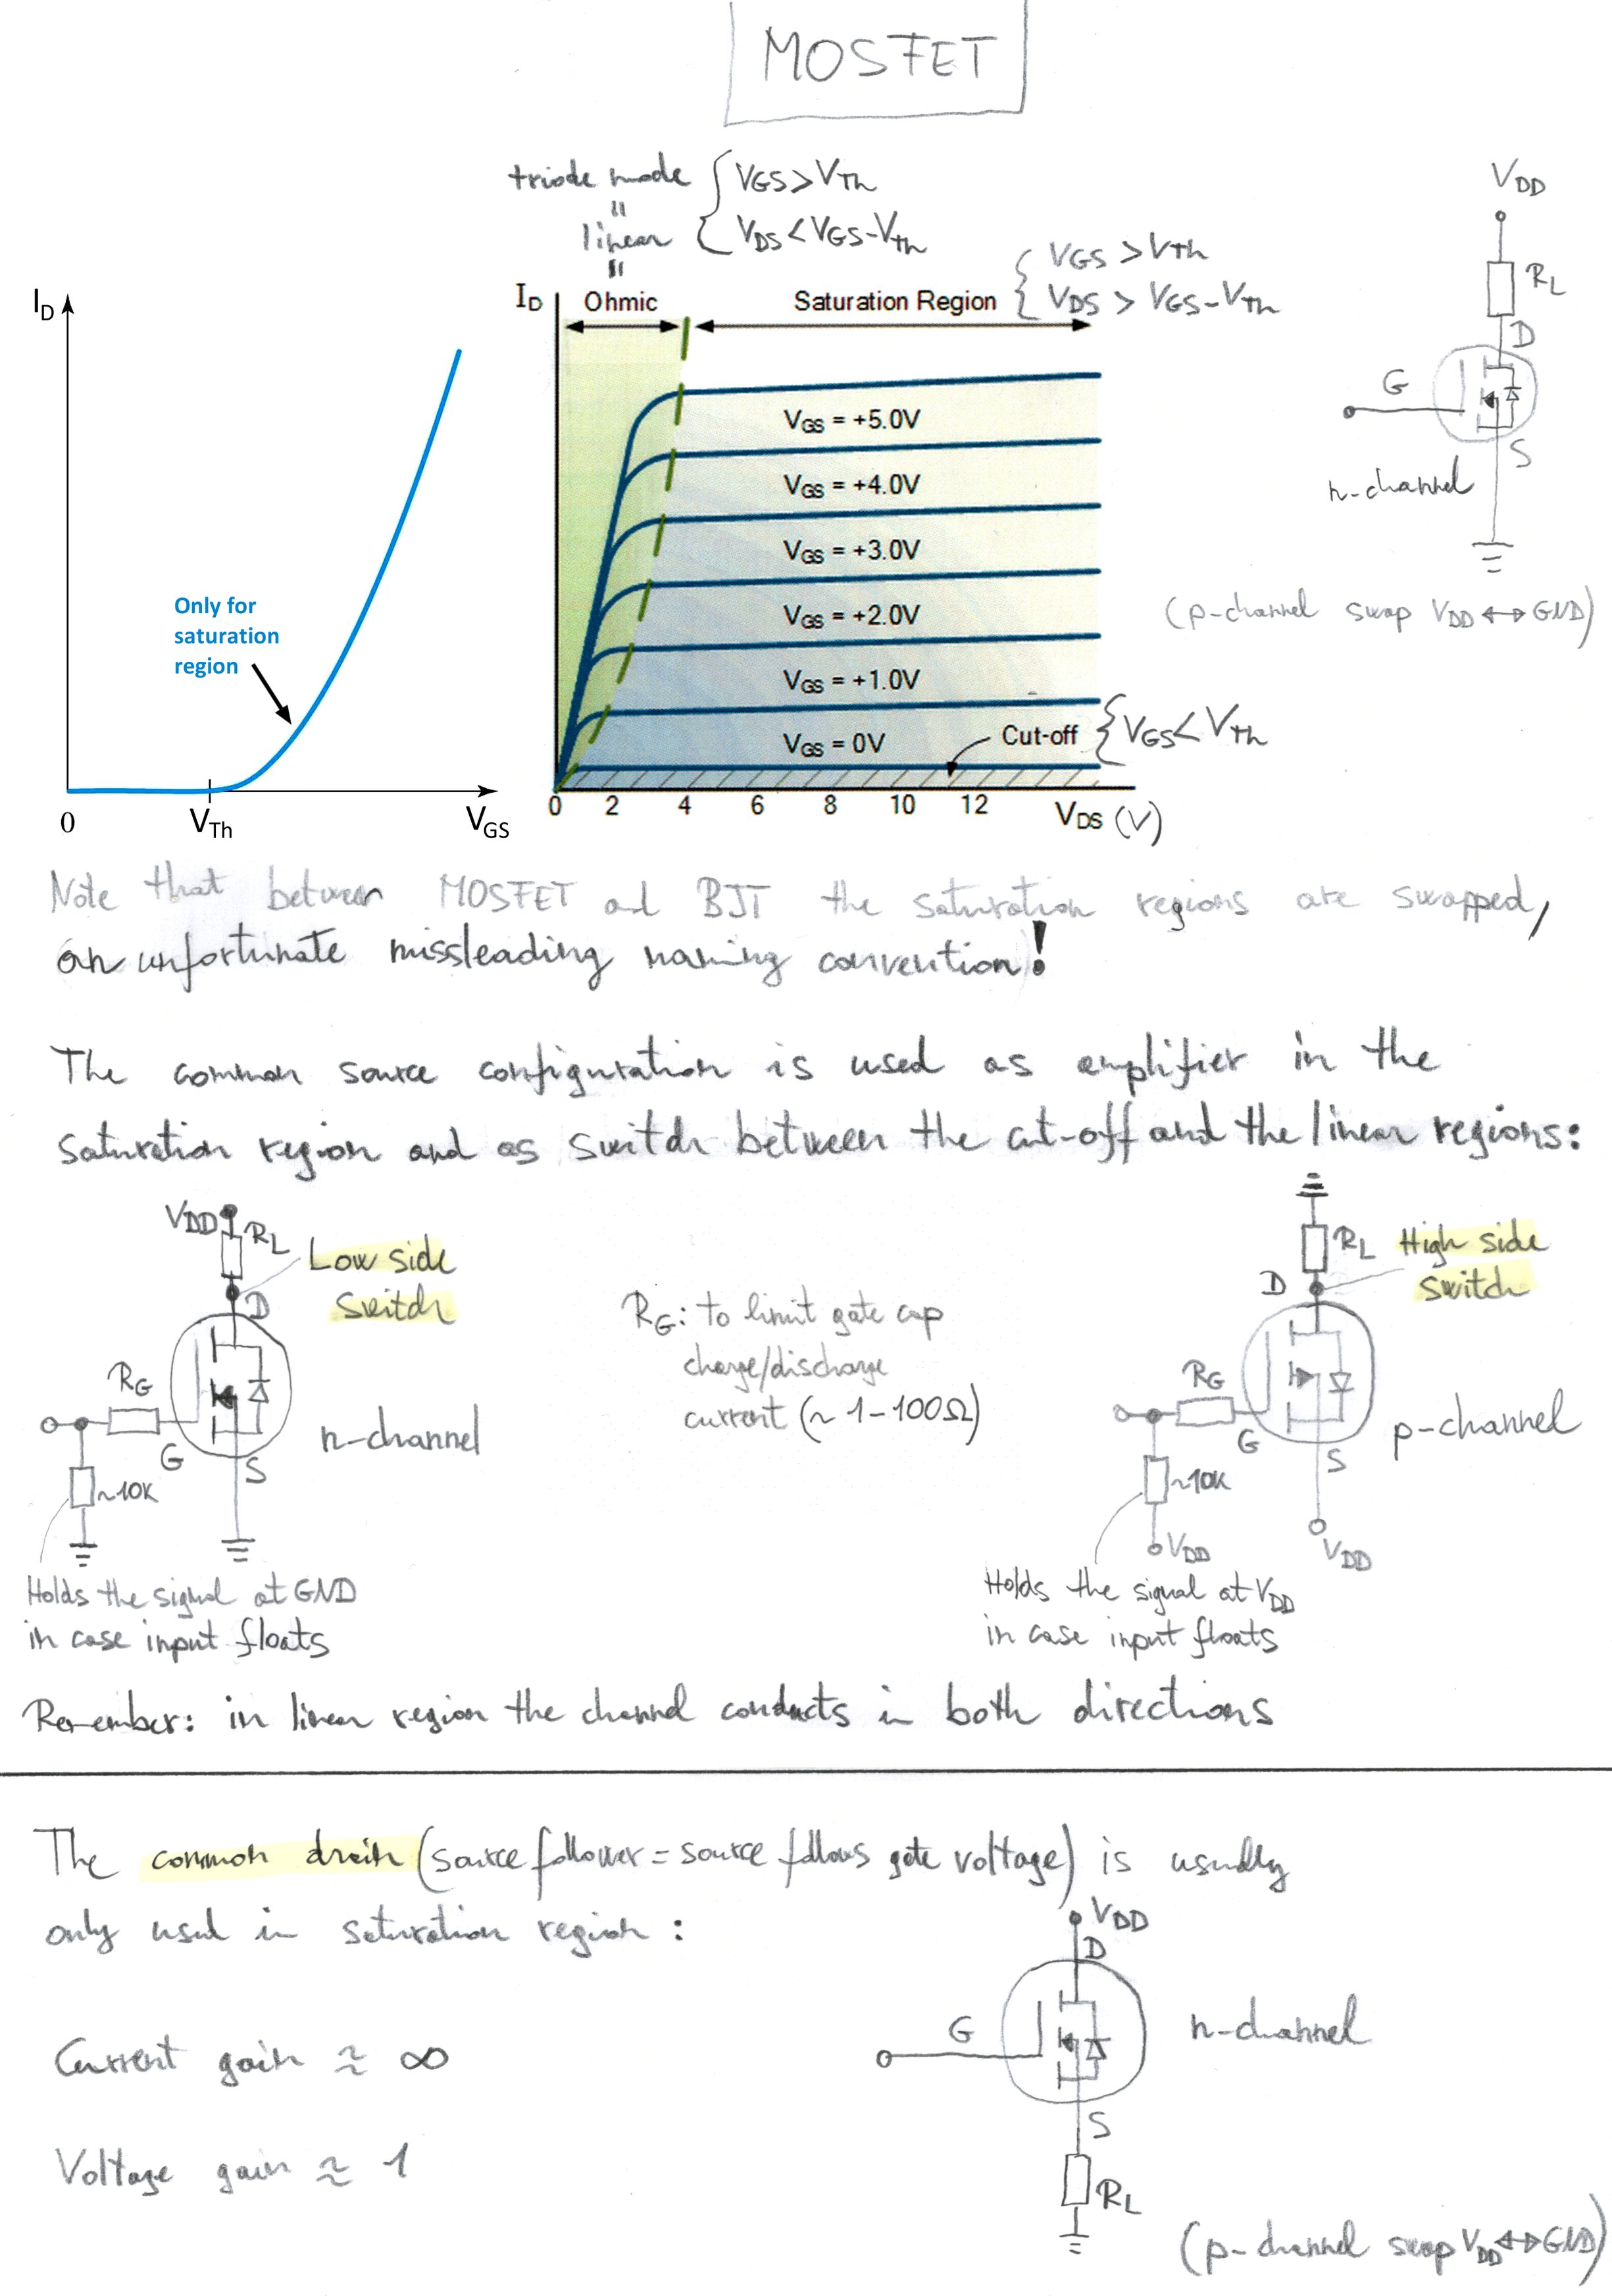 MOSFET
triode mode { VGS > VTh
"
linear { VDS < VGS-VTh
"
{ VGS > VTh
{ VDS > VGS-VTh
ID
Ohmic
Saturation Region
VGS = +5.0V
VGS = +4.0V
VGS = +3.0V
VGS = +2.0V
VGS = +1.0V
VGS = 0V
Cut-off { VGS < VTh
0 2 4 6 8 10 12 VDS (V)
ID
Only for
saturation
region
0 VTh VGS
VDD
RL
D
G
S
n-channel
(p-channel swap VDD ↔ GND)
Note that between MOSFET and BJT the saturation regions are swapped,
an unfortunate missleading naming convention!
The common source configuration is used as amplifier in the
saturation region and as switch between the cut-off and the linear regions:
VDD
RL
Low side
switch
D
RG
G
S
n-channel
~10K
Holds the signal at GND
in case input floats
RG: to limit gate cap
charge/discharge
current (~1-100Ω)
RL
High side
switch
D
RG
G
S
p-channel
~10K
VDD
VDD
Holds the signal at VDD
in case input floats
Remember: in linear region the channel conducts in both directions
The common drain (source follower = source follows gate voltage) is usually
only used in saturation region:
VDD
D
G
n-channel
S
RL
Current gain ≈ ∞
Voltage gain ≈ 1
(p-channel swap VDD ↔ GND)